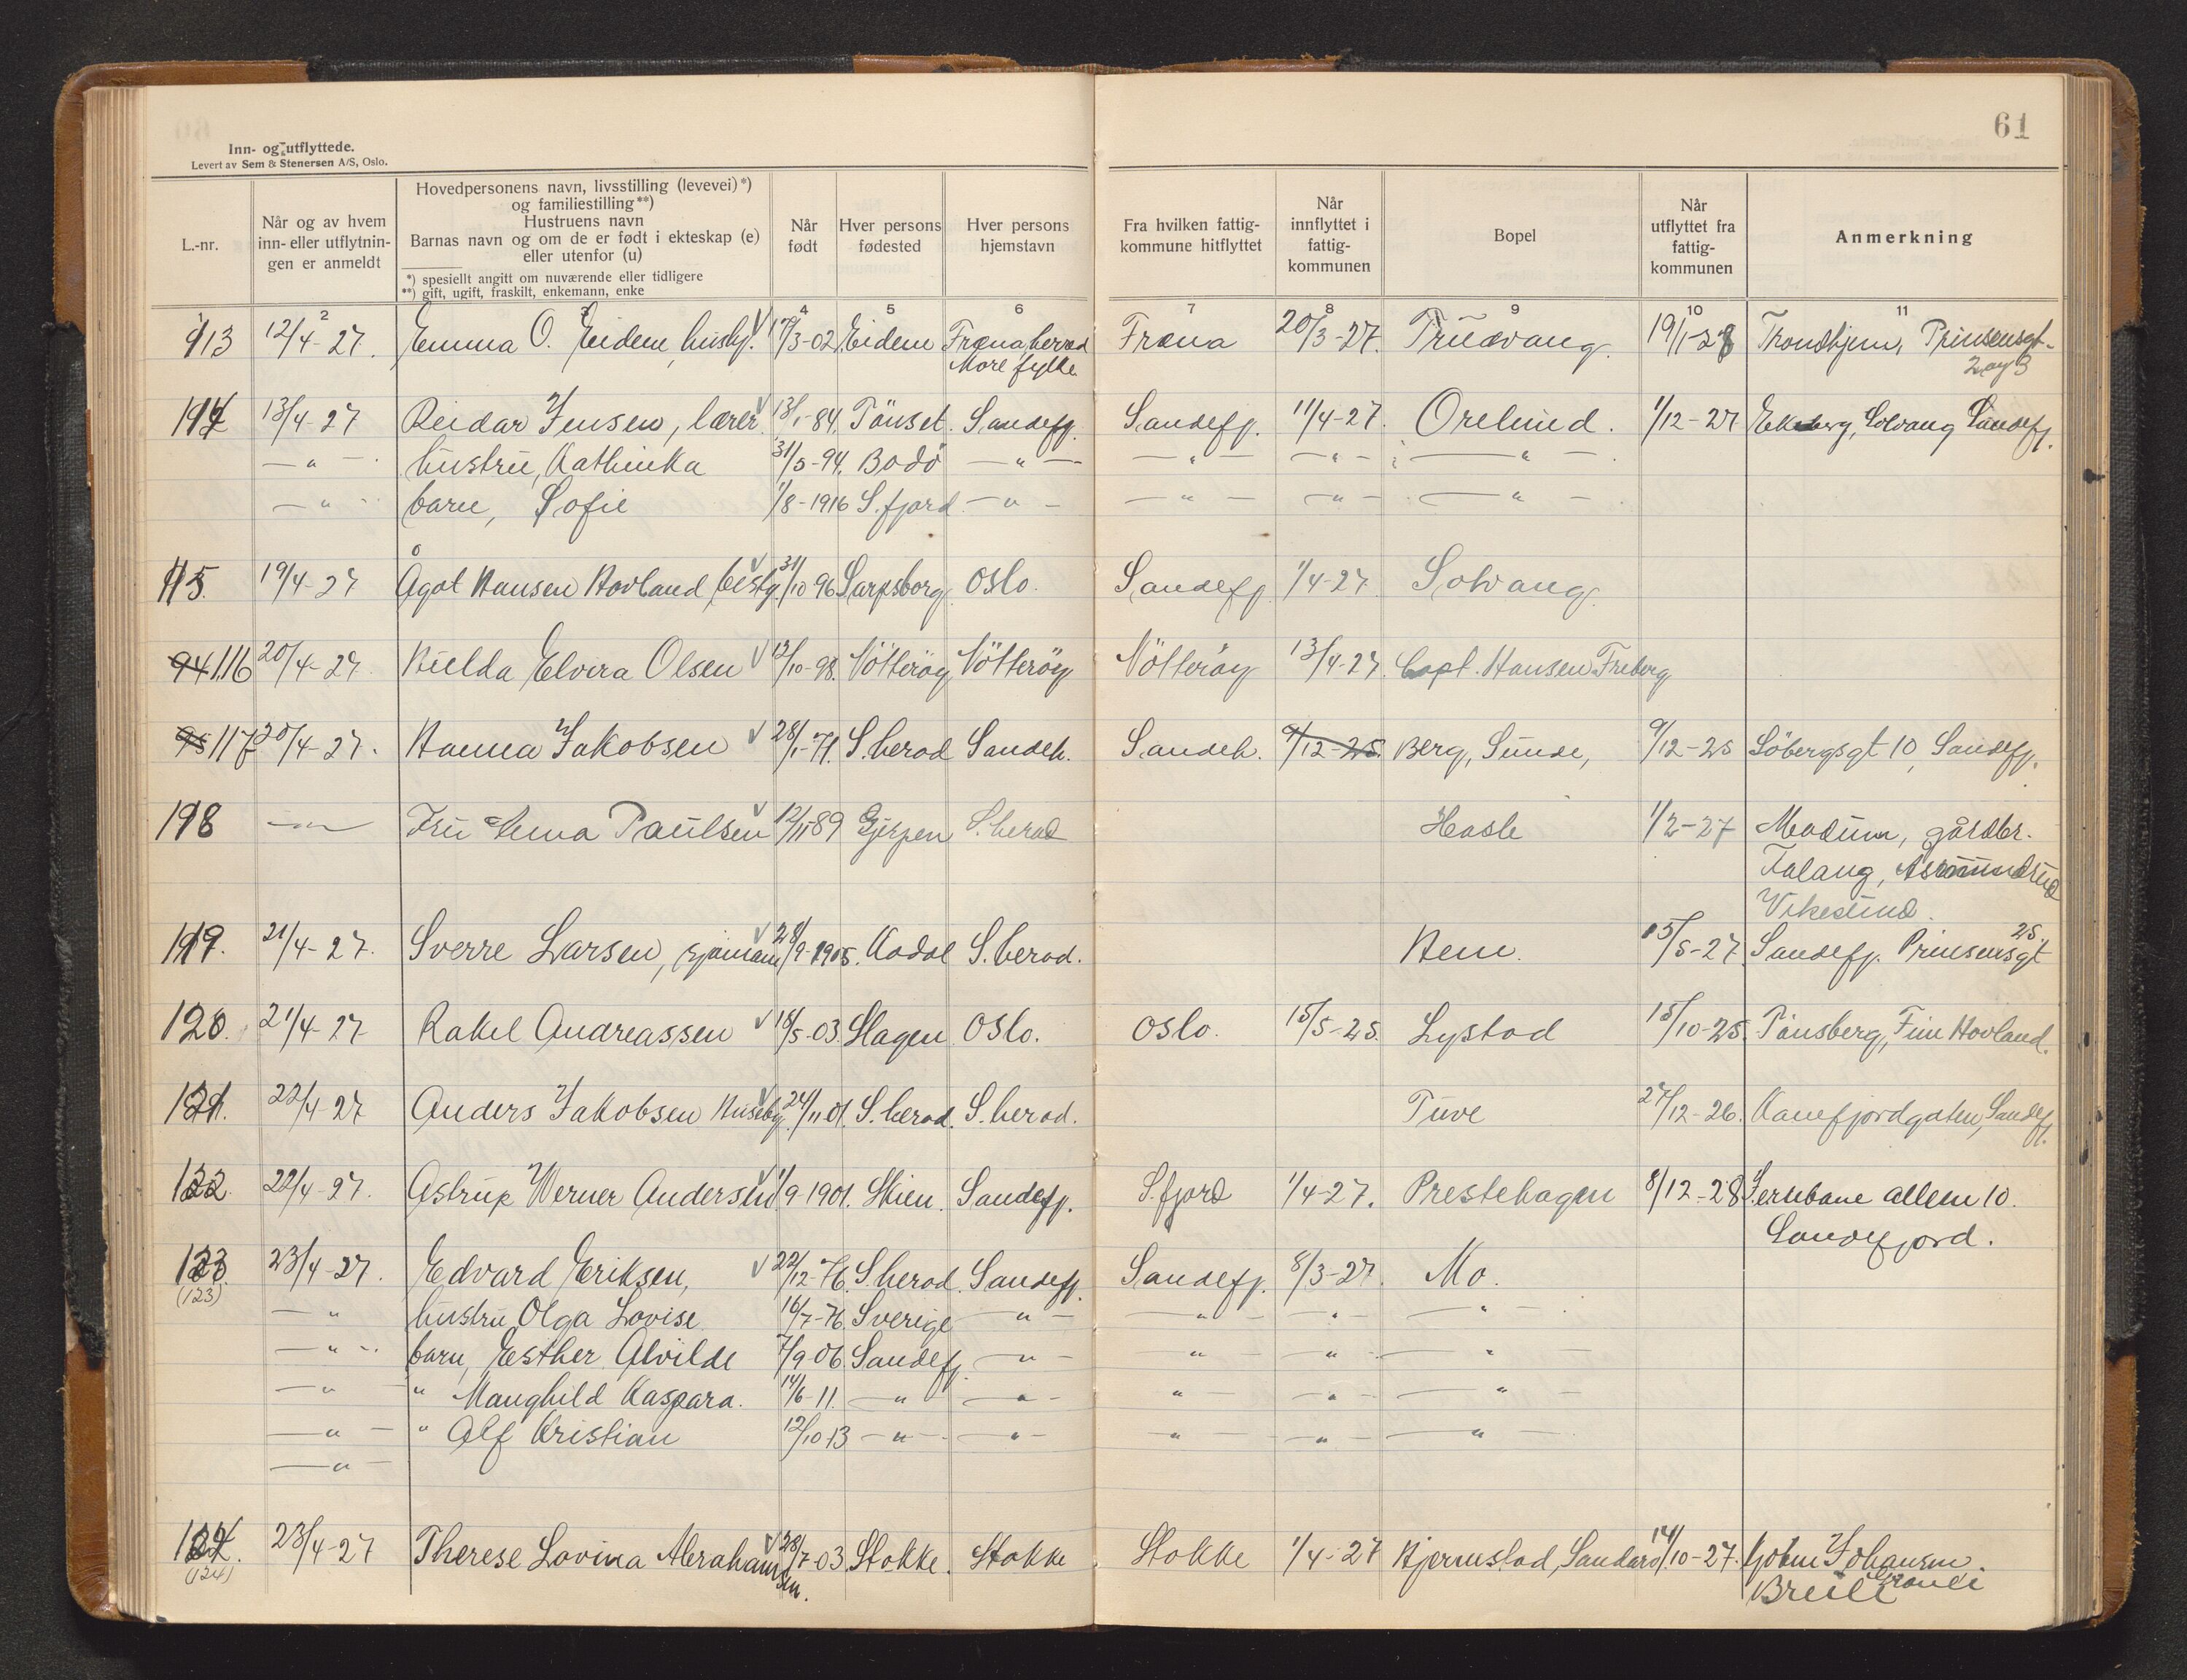 61
Inn- og utflyttede.
Levert av Sem & Stenersen A/S, Oslo.
L.-nr. Når og av hvem inn- eller utflytnin- gen er anmeldt Hovedpersonens navn, livsstilling (levevei)*) og familiestilling**) Hustruens navn Barnas navn og om de er født i ekteskap (e) eller utenfor (u) Når født Hver persons fødested Hver persons hjemstavn Fra hvilken fattig- kommune hitflyttet Når innflyttet i fattig- kommunen Bopel Når utflyttet fra fattig- kommunen Anmerkning
*) spesiellt angitt om nuværende eller tidligere
**) gift, ugift, fraskilt, enkemann, enke
1 2 3 4 5 6 7 8 9 10 11
113 12/4-27. Emma O. Eidem, husbg. 17/3-02 Eidem Fræna herred Fræna 20/3-27. Truevang. 19/1-28 Trondhjem, Prinsensgt.
Møre fylke 2 og 3
114 13/4-27 Reidar Jensen, lærer 13/1-84. Tönset. Sandefj. Sandefj. 11/4-27. Orelund. 1/12-27 Ekeberg, Solvang Sandefj.
-"- hustru, Kathinka 31/5-94. Bodö -"- -"- -"- -"-
-"- barn, Sofie 1/8-1916 S.fjord -"- -"- -"- -"-
115. 19/4-27 Ågot Hansen Hovland, bestg. 31/10 96 Sarpsborg Oslo. Sandefj. 1/4-27. Solvang.
94 116 20/4-27. Hilda Elvira Olsen 12/10-98. Nötteröy Nötteröy Nötteröy 13/4-27. Capt. Hansen Freberg
95 117 20/4-27. Hanna Jakobsen 28/1-71. S.herad Sandeh. Sandeh. 9/12-25. Berg, Sunde, 9/12-25 Söbergsgt 10, Sandefj.
118 -"- Fru Anna Paulsen 12/11 89 Gjerpen S.herad Hasle 1/2-27 Modum, gårdbr.
Falang, Asmundrud
Vikesund.
119. 21/4-27. Sverre Larsen, sjömann 28/9-1905. Kodal S.herad. Hem. 15/5-27. Sandefj. Prinsensgt 25.
120. 21/4-27 Rakel Andreassen 18/5-03. Slagen Oslo. Oslo. 15/5-25. Lystad 15/10-25. Tönsberg, Finn Hovland.
121. 22/4-27 Anders Jakobsen Huseby. 24/11 01. S.herad. S.herad. Tuve 27/12-26. Kanefjordgaten, Sandefj.
122. 22/4-27. Astrup Werner Andersen 1/9-1901. Skien. Sandefj. S.fjord 1/4-27. Prestehagen 8/12-28 Jernbane alleen 10.
Sandefjord.
123. 23/4-27. Edvard Eriksen, 22/12-76. S.herad. Sandefj. Sandefj. 8/3-27. Mo.
(123)
-"- hustru, Olga Lovise 16/7-76 Sverige -"- -"- -"- -"-
-"- barn, Esther Alvilde 7/9-06 Sandefj. -"- -"- -"- -"-
-"- " Manghild Kaspara. 14/6-11. -"- -"- -"- -"- -"-
-"- " Alf Kristian 12/10 13 -"- -"- -"- -"- -"-
-"-
124. 23/4-27 Therese Lovina Abrahamsen. 28/7-03 Stokke. Stokke Stokke 1/4-27 Bjermstad, Sandar 14/10-27. Johansen.
(124)